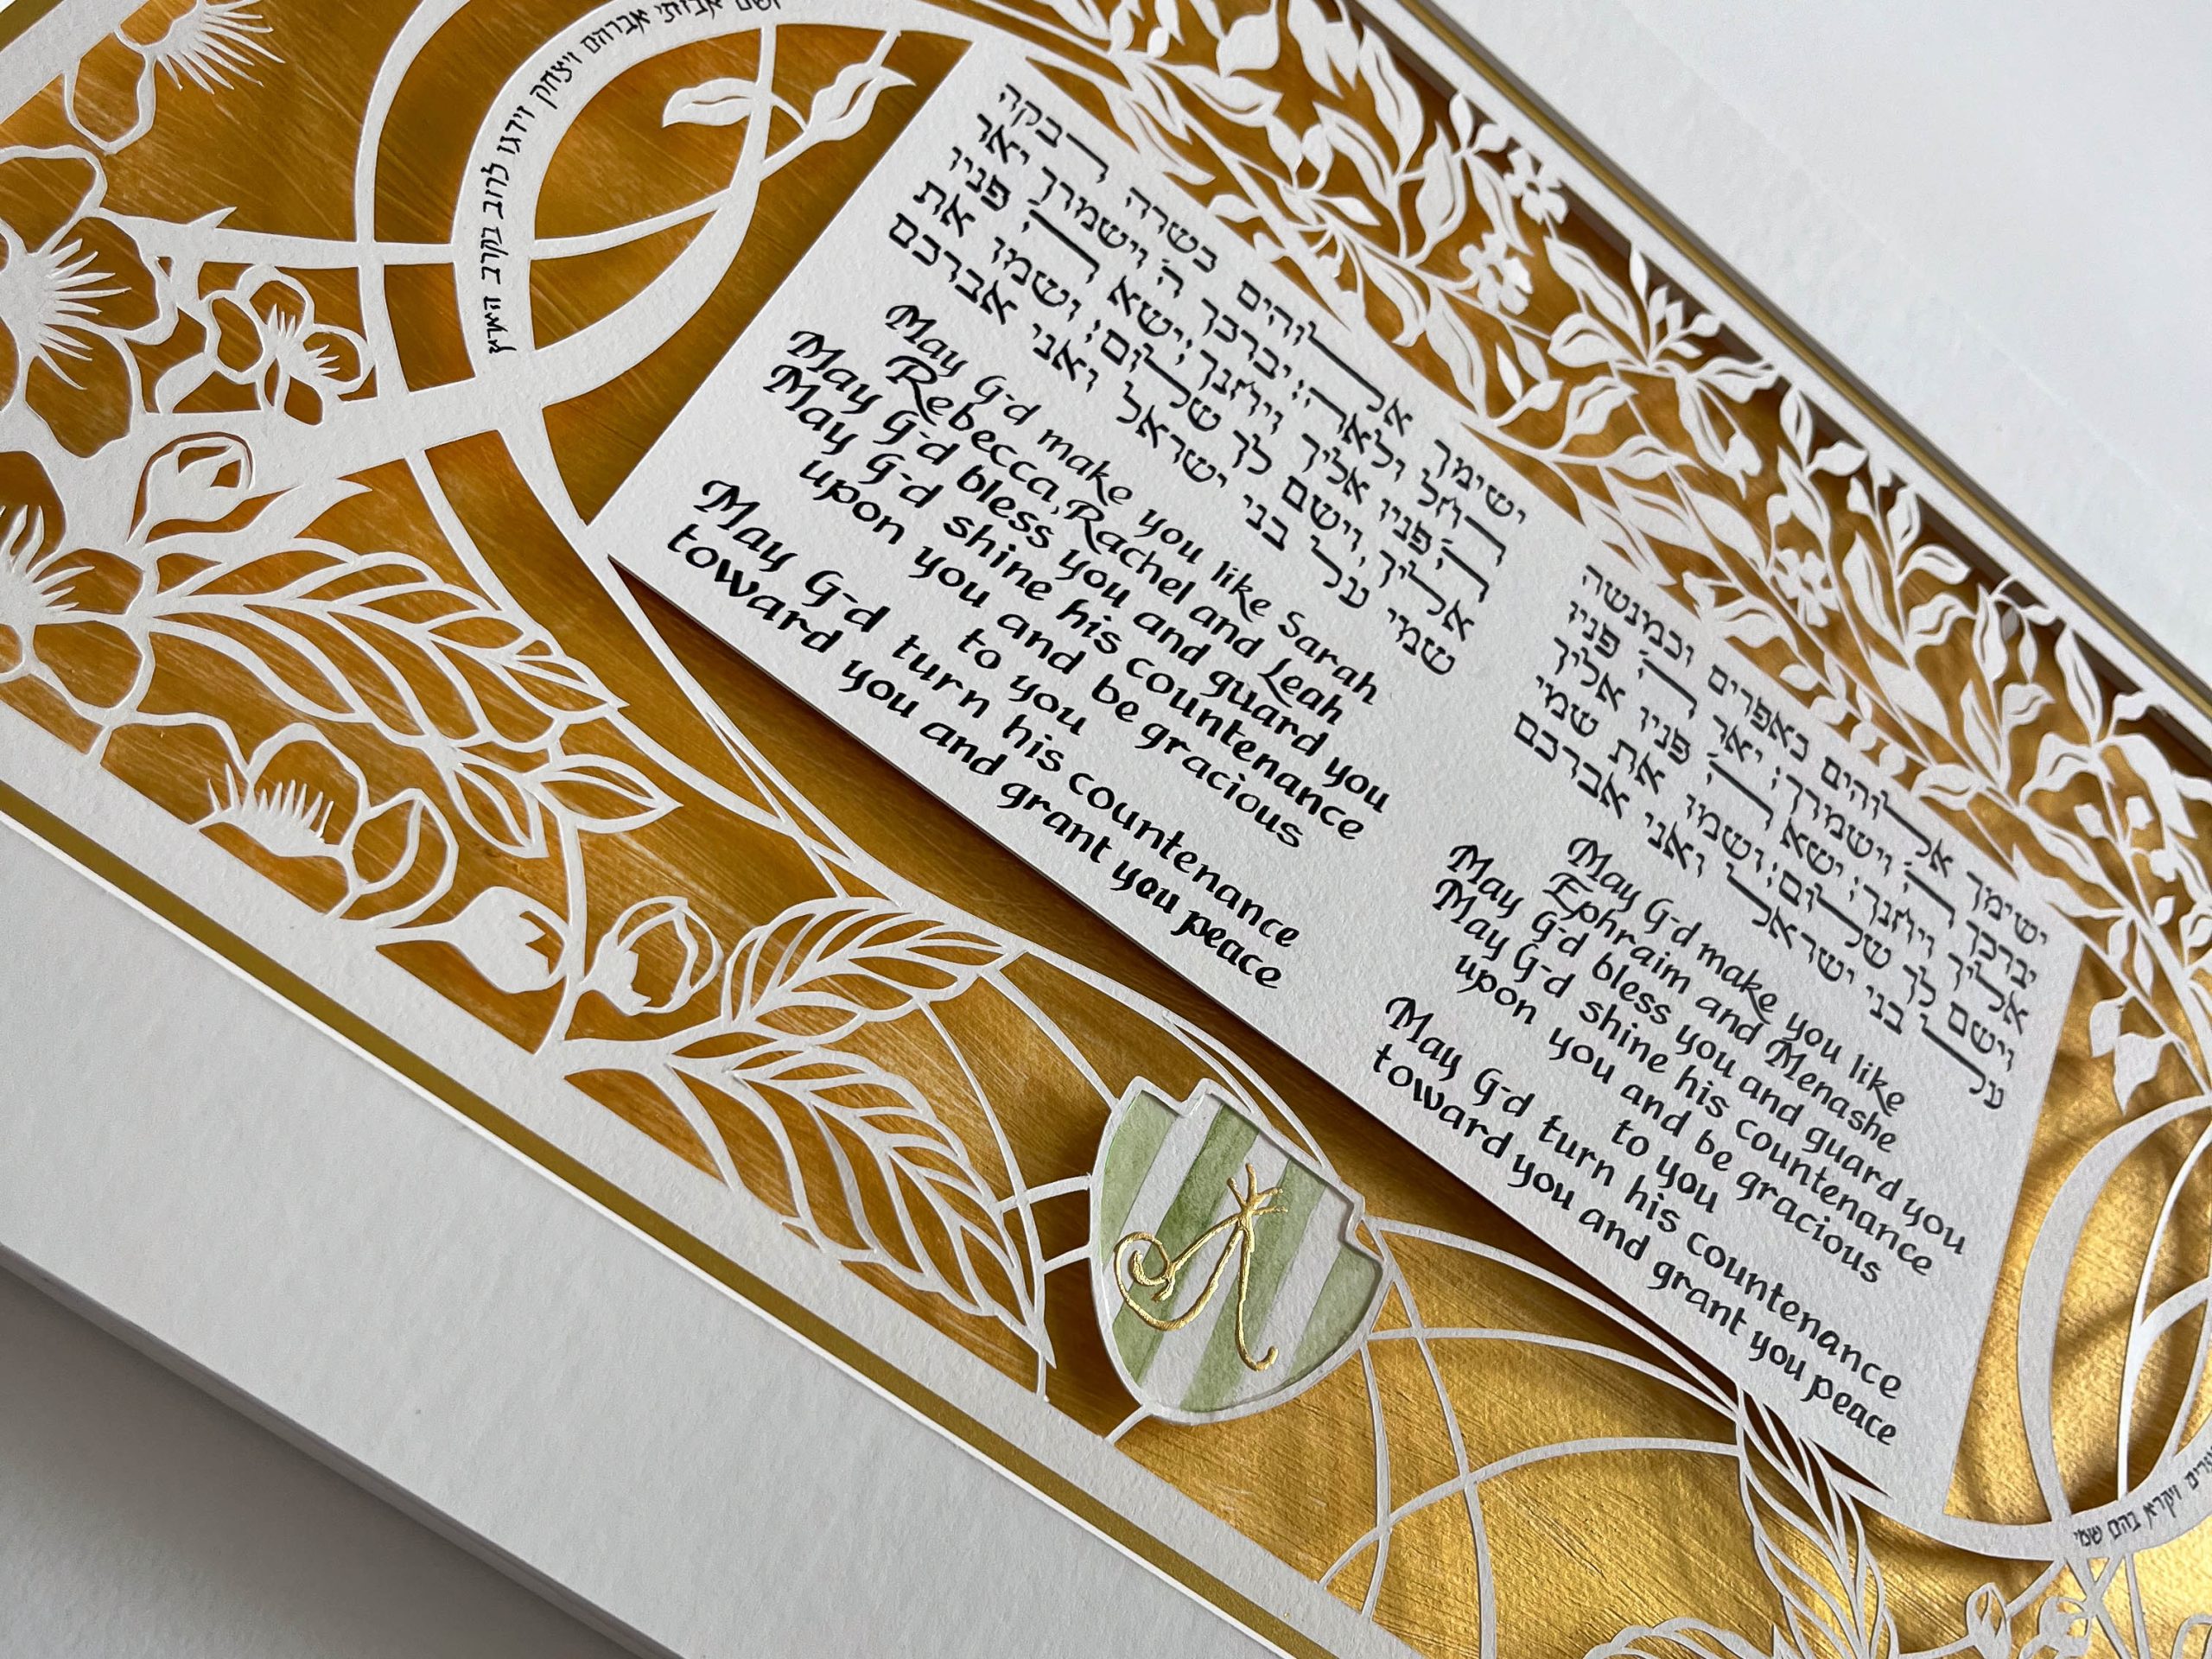 אבותי אברהם ויצחק וידגו לרוב בקרב הארץ
ישימך אלוהים כשרה רבקה
רחל ולאה: יברכך ה' וישמרך יאר
ה' פניו אליך ויחנך: ישא ה' פניו
אליך וישם לך שלום: ושמו את
שמי על בני ישראל ואני אברכם
May G-d make you like Sarah
Rebecca, Rachel and Leah
May G-d bless you and guard you
May G-d shine his countenance
upon you and be gracious
to you
May G-d turn his countenance
toward you and grant you peace
ישימך אלוהים כאפרים וכמנשה
יברכך ה' וישמרך: יאר ה' פניו
אליך ויחנך: ישא ה' פניו אליך
וישם לך שלום: ושמו את שמי
על בני ישראל ואני אברכם
May G-d make you like
Ephraim and Menashe
May G-d bless you and guard you
May G-d shine his countenance
upon you and be gracious
to you
May G-d turn his countenance
toward you and grant you peace
ויקרא בהם שמי